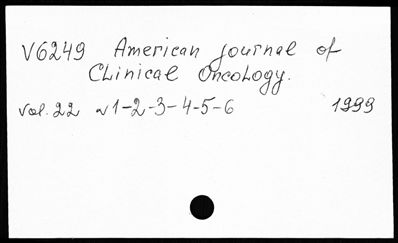 V6249 American journal of
Clinical Oncology.
Vol. 22 N 1-2-3-4-5-6 1999